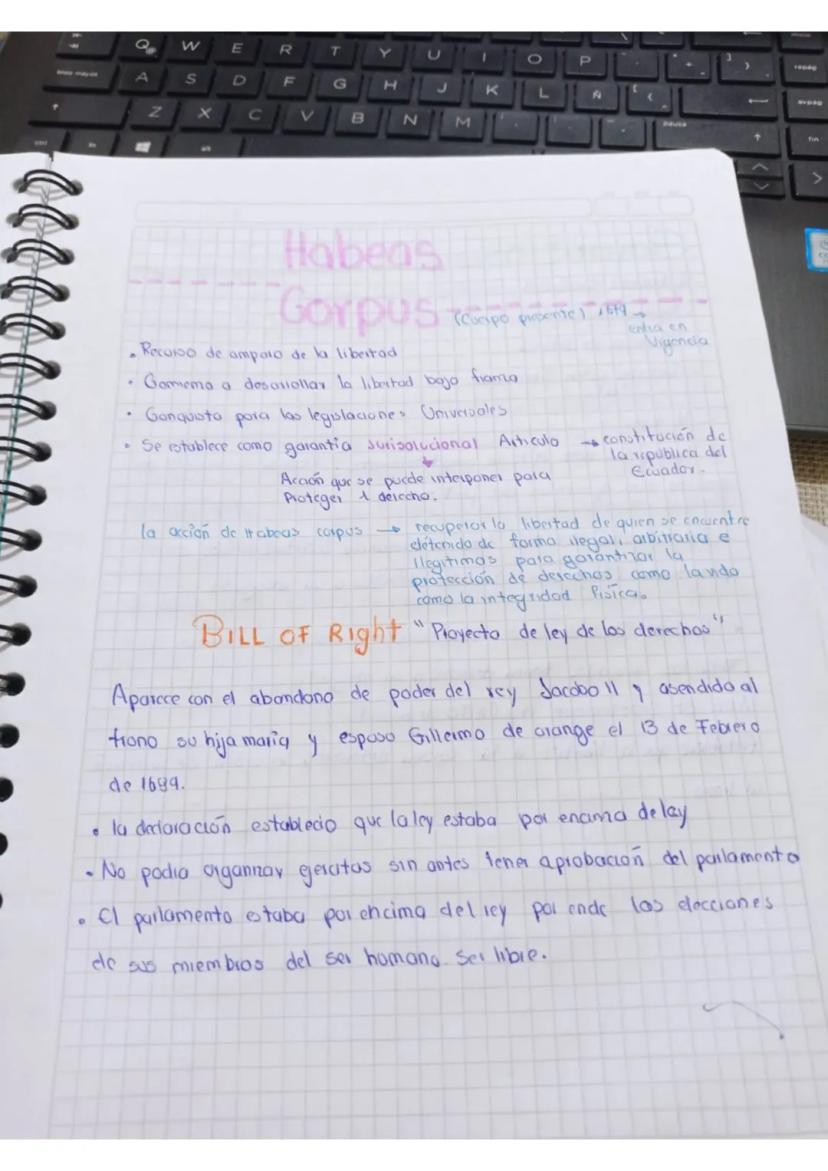 Habeas
Corpus (Cuerpo presente) 1679 → entra en
Vigencia
• Recurso de amparo de la libertad
• Comiema a desarrollar la libertad bajo fiama
• Conquista para las legislaciones Universales
• Se establece como garantía Jurisolucional Artículo → constitución de
la república del
Ecuador.
Acción que se puede interponer para
Proteger 1 derecho.
la acción de Habeas corpus → recuperar la libertad de quien se encuentre
detenido de forma ilegal, arbitraria e
Ilegítimas para garantizar la
protección de derechos como la vida
como la integridad física.
BILL OF Right "Proyecto de ley de los derechos"
Aparece con el abandono de poder del rey Jacobo II y asendido al
trono su hija maria y esposo Gillermo de orange el 13 de Febrero
de 1689.
• la declaración establecio que la ley estaba por encima de lay
• No podia organnar ejercitos sin antes tener aprobación del parlamento
• El parlamento estaba por encima del rey por ende las elecciones
de sus miembros del ser humano ser libre.
Q W E R T Y U I O P
A S D F G H J K L Ñ
Z X C V B N M